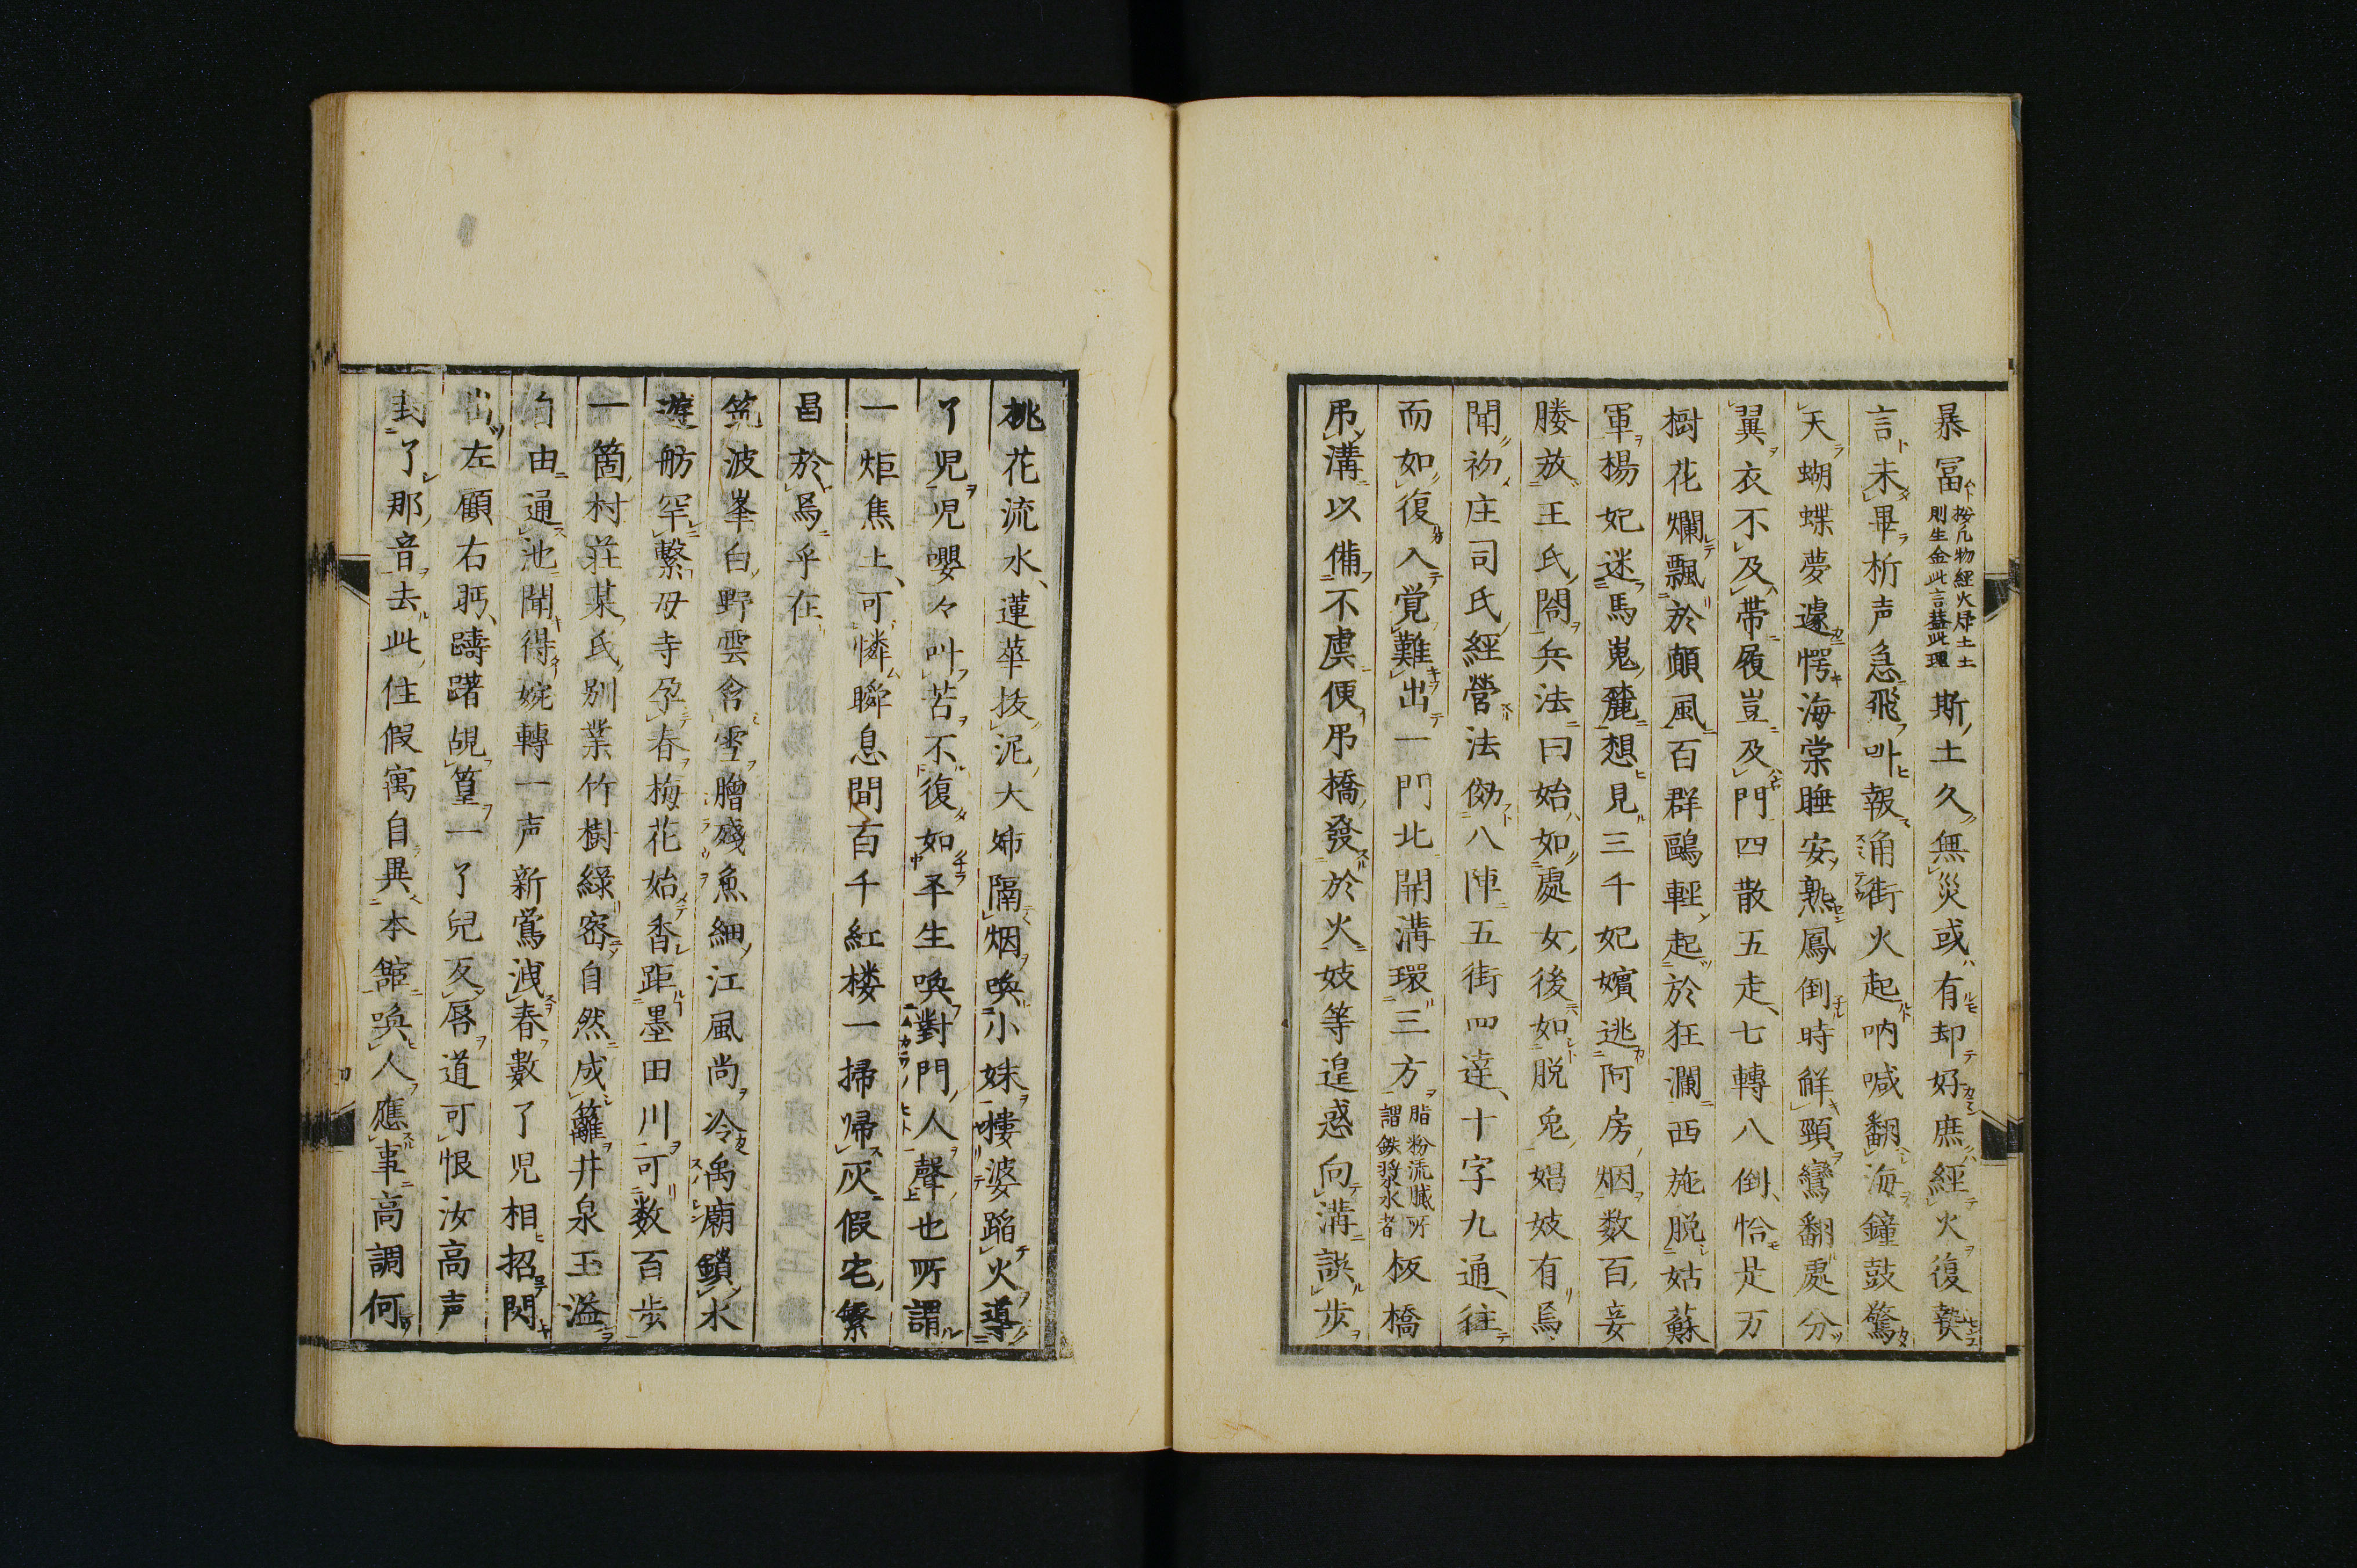 暴冨按凡物経火帰土土則生金此言葢此理斯土久無災或有却好庶經火復贅
言未畢析声急飛叫報角街火起吶喊翻海鐘鼓驚
天蝴蝶夢遽愕海棠睡安熟鳳倒時觧頸鸞翻處分
翼衣不及帯履豈及門四散五走七轉八倒恰是万
樹花爛飄於顛風百群鷗輕起於狂瀾西施脱姑蘇
軍楊妃迷馬嵬蘢想見三千妃嬪逃阿房烟数百妾
媵放王氏閤兵法曰始如處女後如脱兎娼妓有焉
聞初庄司氏經營法倣八陣五街四達十字九通往
而如復入覚難出一門北開溝環三方脂粉流膩所謂鉄漿水者板橋
吊溝以備不虞便吊橋發於火妓等遑惑向溝誤歩
桃花流水蓮華抜泥大姉隔烟喚小妹樓婆蹈火導
了児児嚶々叫苦不復如平生喚對門人聲也所謂
一炬焦土可憐瞬息間百千紅楼一掃帰灰假宅繁
昌於焉乎在
筑波峯白野雲含雪膾殘魚細江風尚冷禹廟鎖水
遊舫罕繋母寺孕春梅花始香距墨田川可数百歩
一箇村荘某氏別業竹樹緑密自然成籬井泉玉溢
自由通池聞得婉轉一声新鴬洩春數了児相招閃
出左顧右眄躊躇覘篁一了兒反唇道可恨汝高声
封了那音去此住假寓自異本舘喚人應事高調何